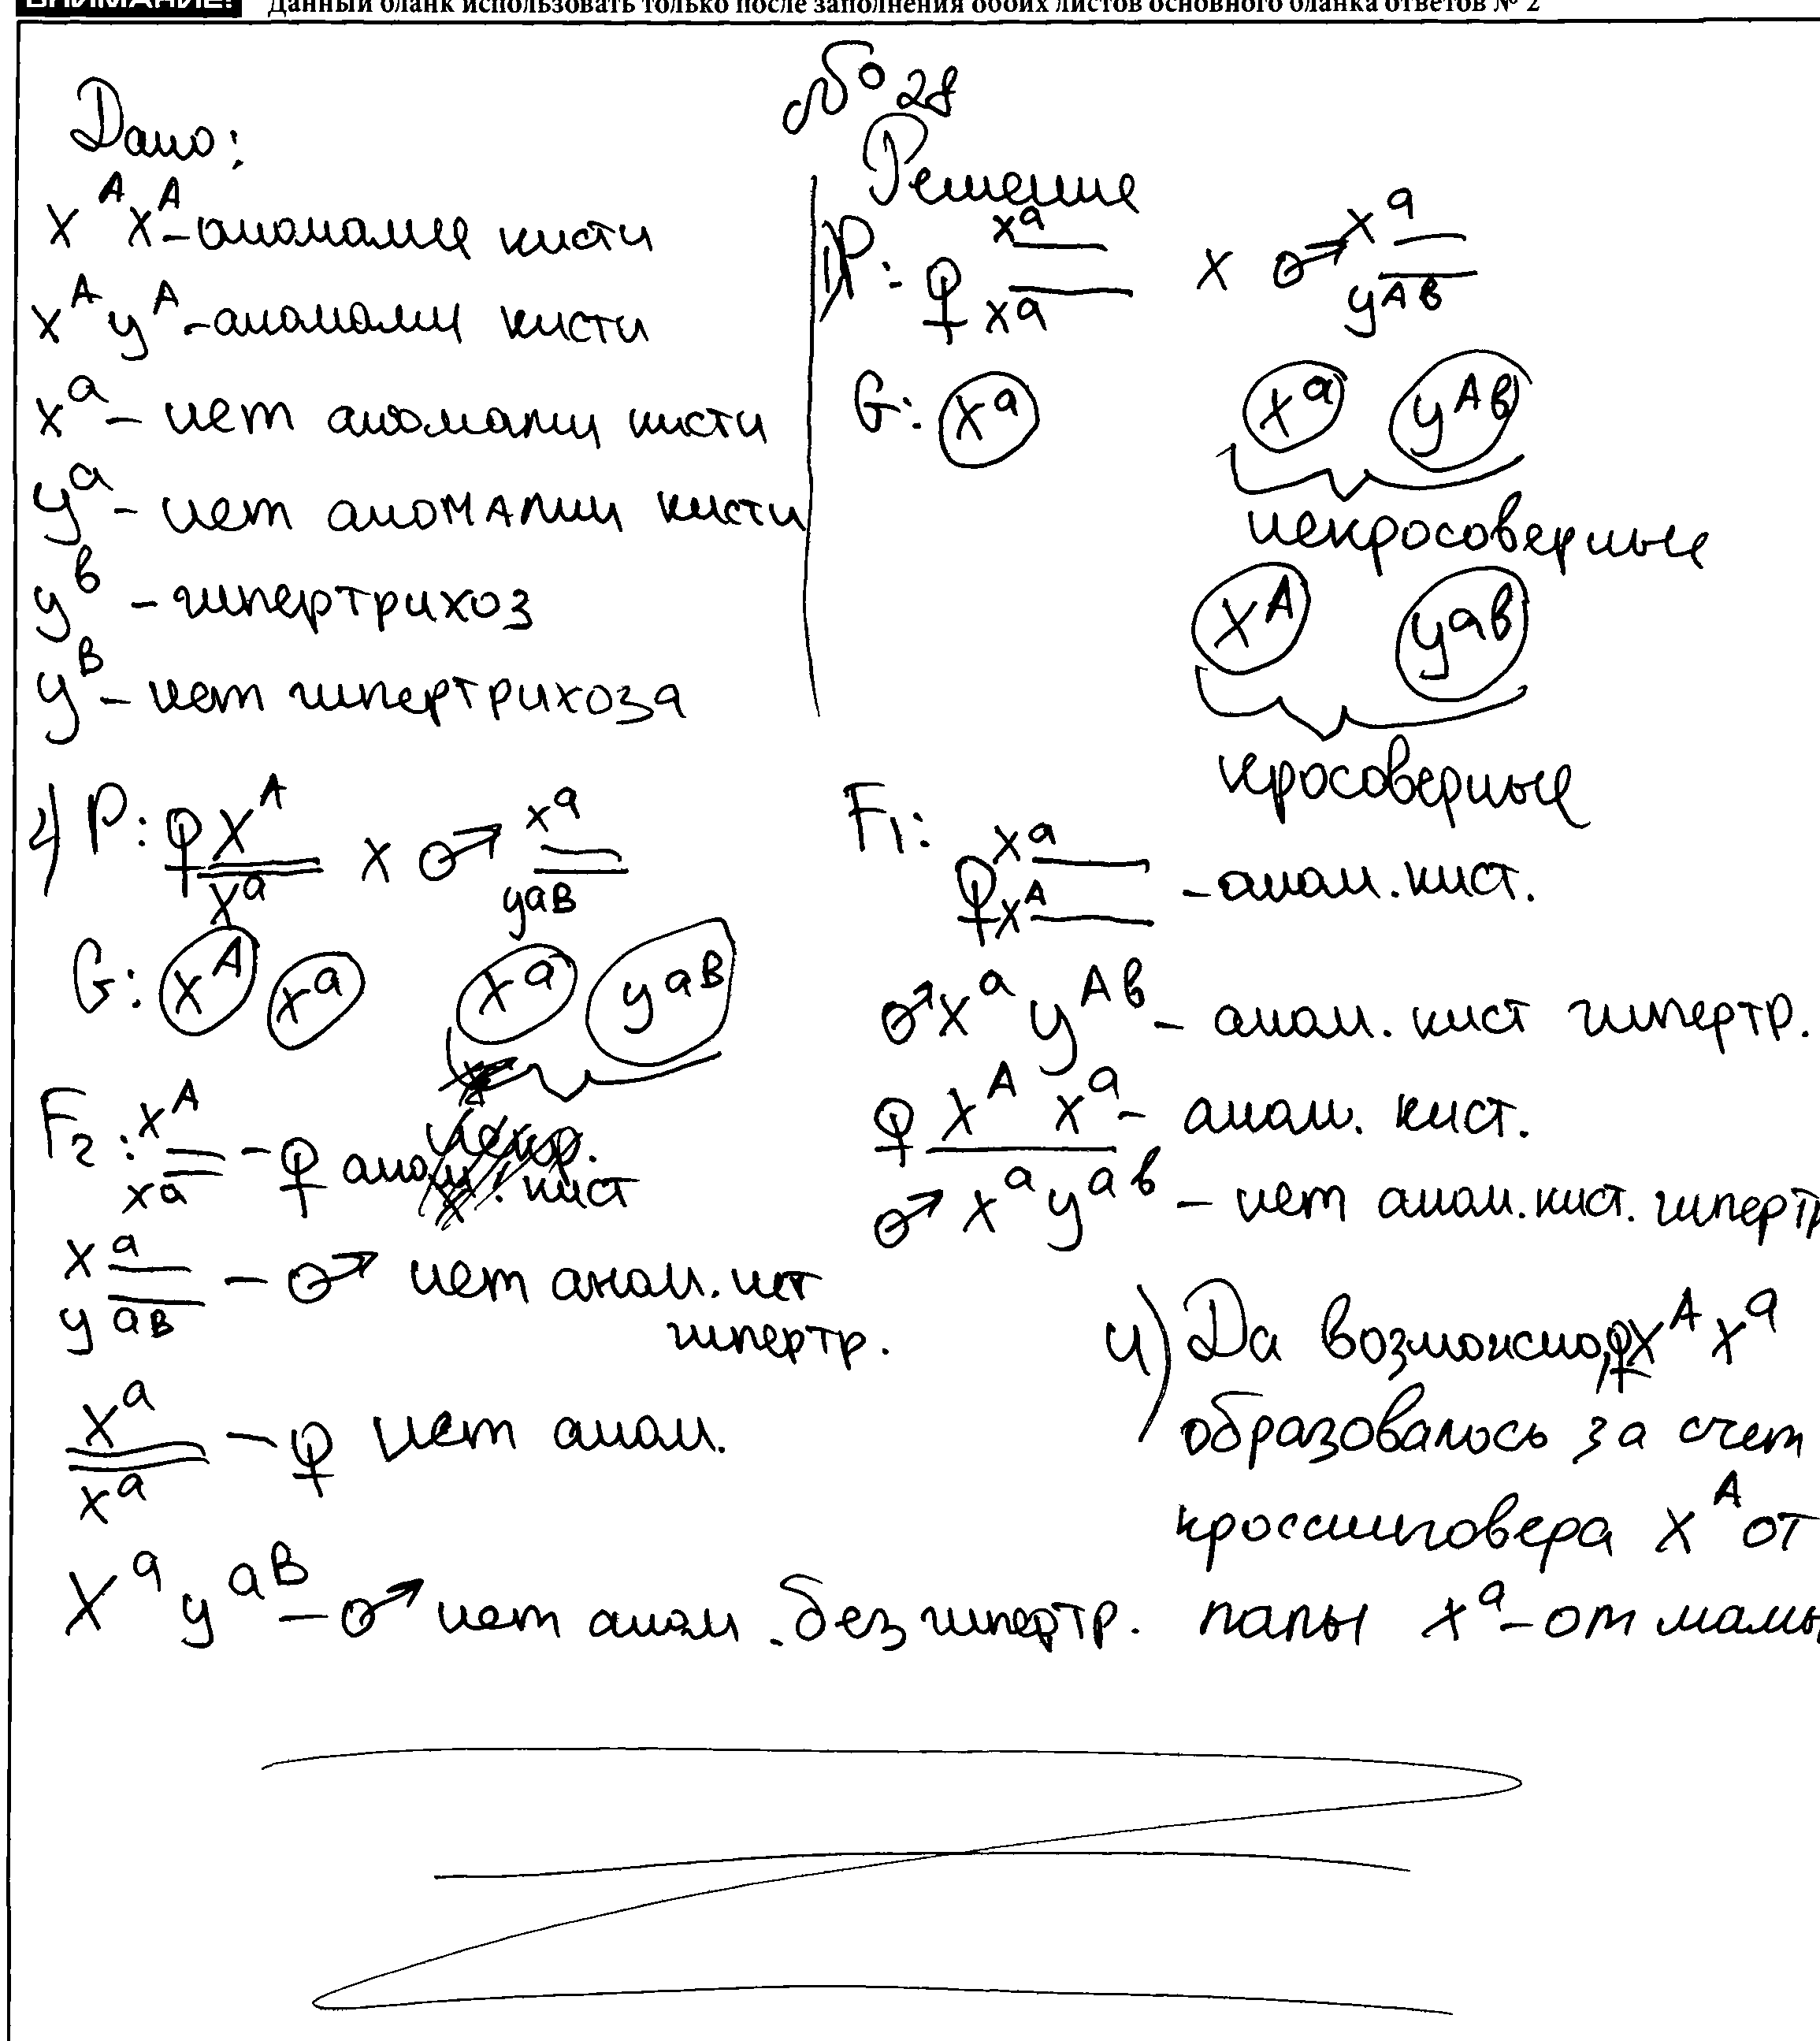 ВНИМАНИЕ! Данный бланк использовать только после заполнения обоих листов основного бланка ответов № 2
№ 28
Дано:
X^A X^A - аномалия кисти
X^A y^A - аномалии кисти
X^a - нет аномалии кисти
y^a - нет аномалии кисти
y^b - гипертрихоз
y^B - нет гипертрихоза
Решение
1) P: ♀ X^a / X^a x ♂ X^a / y^Ab
G: X^a X^a y^Ab
некросоверные
X^A y^ab
кросоверные
F1: ♀ X^a / X^A - аном. кист.
♂ X^a y^Ab - аном. кист гипертр.
♀ X^A X^a - аном. кист.
♂ X^a y^ab - нет аном. кист. гипертр
2) P: ♀ X^A / X^a x ♂ X^a / y^aB
G: X^A X^a X^a y^aB
F2: X^A / X^a - ♀ аном. кист
X^a / y^aB - ♂ нет аном. нет
гипертр.
X^a / X^a - ♀ нет аном.
X^a y^aB - ♂ нет аном. без гипертр.
4) Да возможно, ♀ X^A X^a
образовалось за счет
кроссинговера X^A от
папы X^a - от мамы